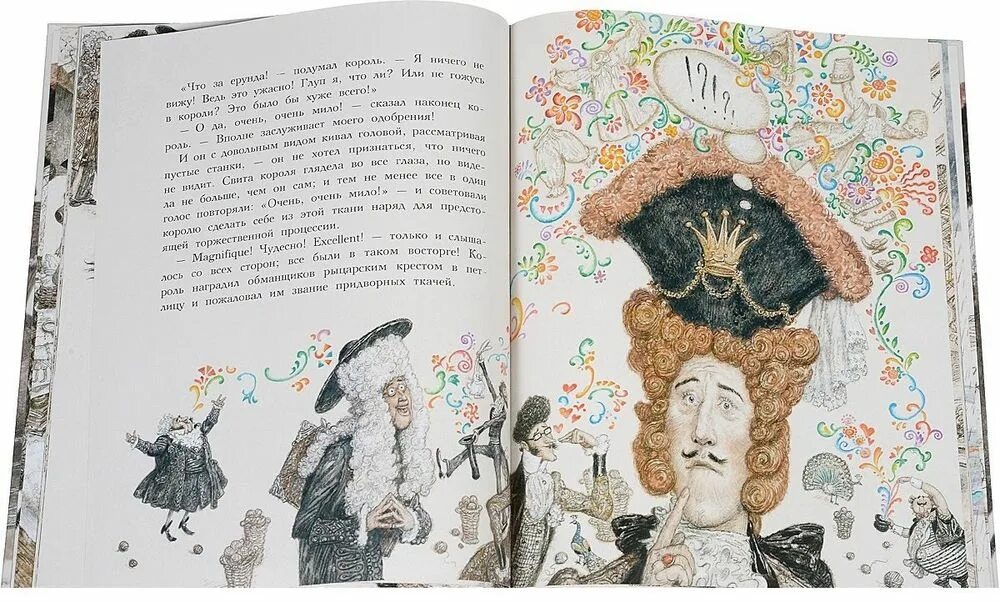 «Что за ерунда! — подумал король. — Я ничего не
вижу! Ведь это ужасно! Глуп я, что ли? Или не гожусь
в короли? Это было бы хуже всего!»
— О да, очень, очень мило! — сказал наконец ко-
роль. — Вполне заслуживает моего одобрения!
И он с довольным видом кивал головой, рассматривая
пустые станки, — он не хотел признаться, что ничего
не видит. Свита короля глядела во все глаза, но виде-
ла не больше, чем он сам; и тем не менее все в один
голос повторяли: «Очень, очень мило!» — и советовали
королю сделать себе из этой ткани наряд для предсто-
ящей торжественной процессии.
— Magnifique! Чудесно! Excellent! — только и слыша-
лось со всех сторон; все были в таком восторге! Ко-
роль наградил обманщиков рыцарским крестом в пет-
лицу и пожаловал им звание придворных ткачей.
!?!,